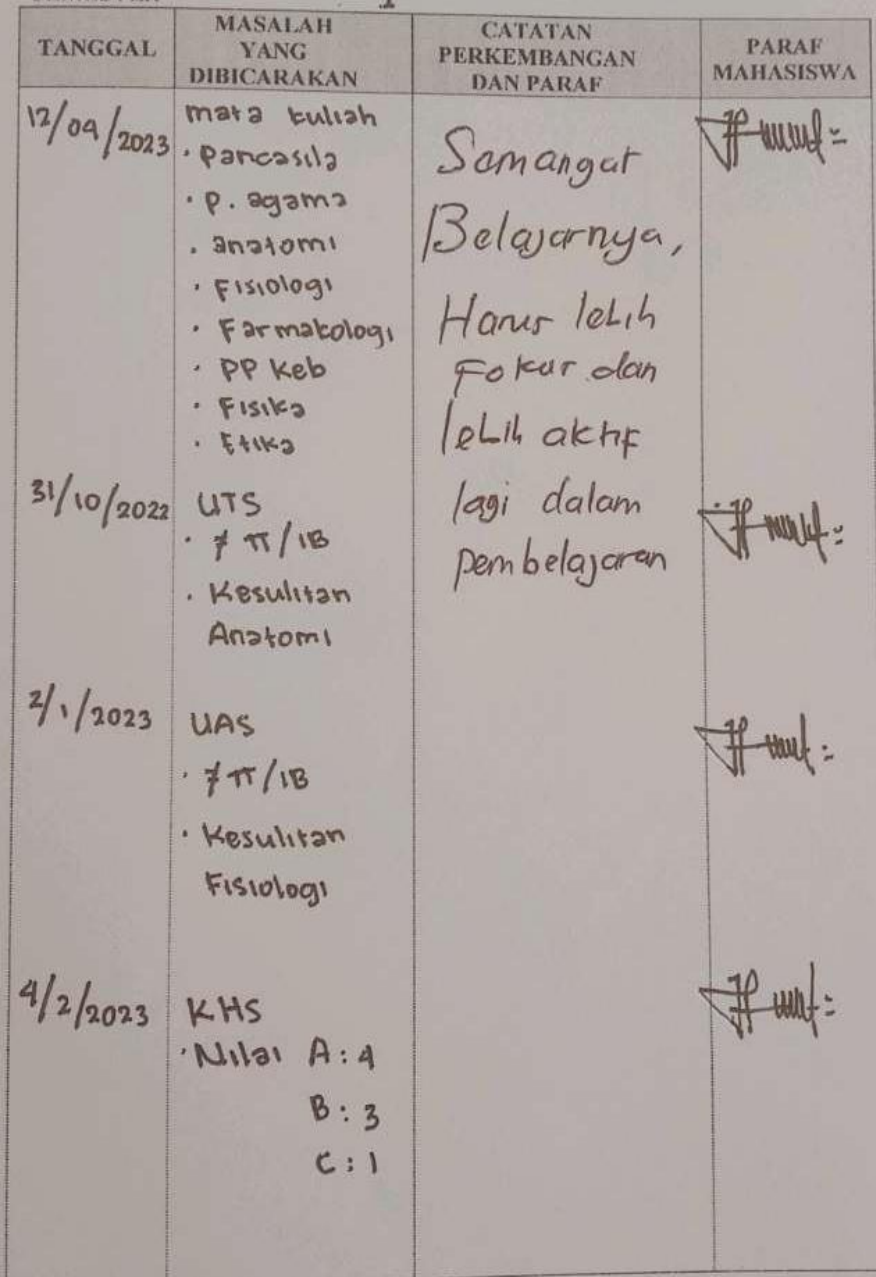 TANGGAL
MASALAH
YANG
DIBICARAKAN
CATATAN
PERKEMBANGAN
DAN PARAF
PARAF
MAHASISWA
12/09/2023
mata kuliah
· pancasila
· p. agama
· anatomi
· Fisiologi
· Farmakologi
· PP Keb
· Fisika
· Etika
Semangat
Belajarnya,
Harus lebih
Fokus dan
lebih aktif
lagi dalam
pembelajaran
31/10/2022
UTS
· Kesulitan
Anatomi
2/1/2023
UAS
· Kesulitan
Fisiologi
4/2/2023
KHS
· Nilai A : 4
B : 3
C : 1